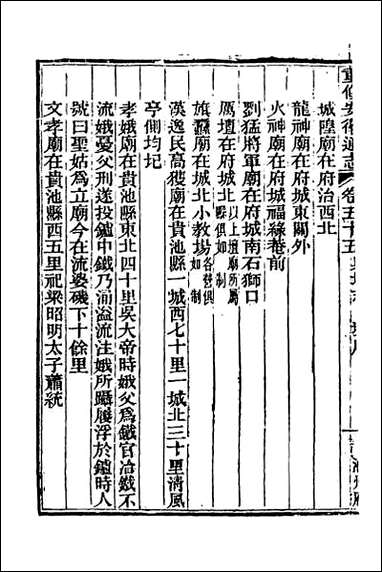 重修安徽通志 卷五十五
城隍廟在府治西北
龍神廟在府城東關外
火神廟在府城福緣菴前
劉猛將軍廟在府城南石獅口
厲壇在府城北以上壇廟所屬縣俱如制
旗纛廟在城北小教場各營俱如制
漢逸民高獲廟在貴池縣一城西七十里一城北三十里清風
亭側均圮
孝娥廟在貴池縣東北四十里吳大帝時娥父爲鐵官冶鐵不
流娥憂父刑遂投鑪中鐵乃湳溢流注娥所躡履浮於鑪時人
號曰聖姑爲立廟今在流婆磯下十餘里
文孝廟在貴池縣西五里祀梁昭明太子蕭統